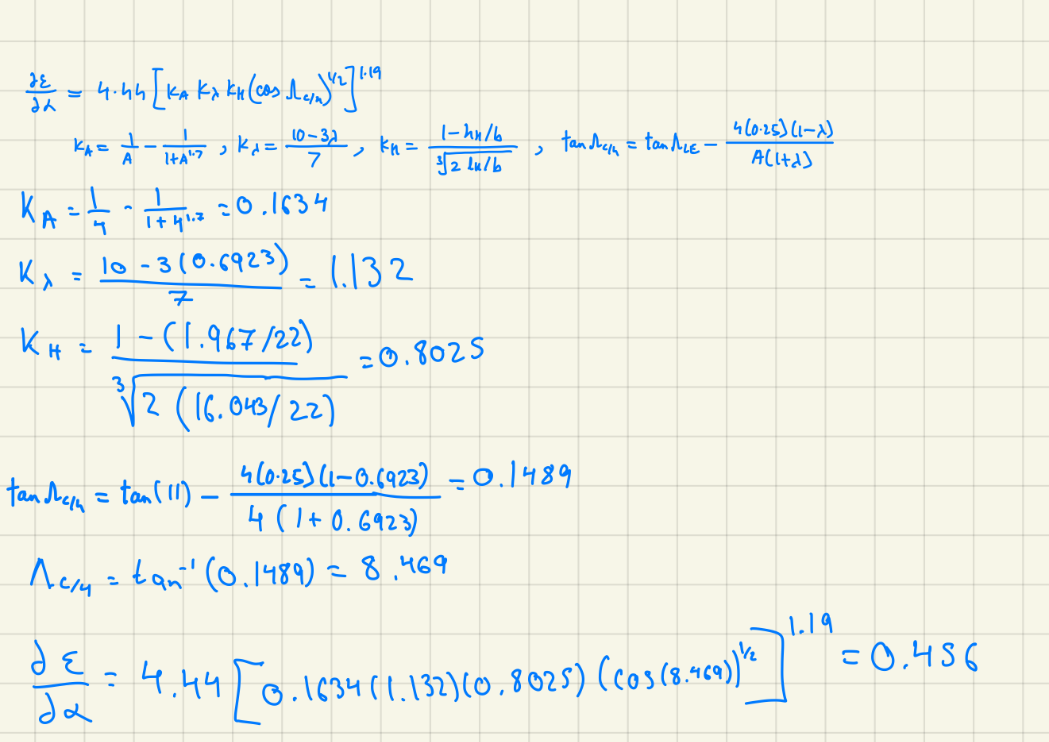 ∂ε/∂α = 4.44 [K_A K_λ K_H (cos Λ_c/4)^1/2]^1.19
K_A = 1/A - 1/(1+A^1.7) , K_λ = (10-3λ)/7 , K_H = (1-h_H/b)/∛(2 l_H/b) , tan Λ_c/4 = tan Λ_LE - 4(0.25)(1-λ)/(A(1+λ))
K_A = 1/4 - 1/(1+4^1.7) = 0.1634
K_λ = (10-3(0.6923))/7 = 1.132
K_H = (1-(1.967/22))/∛(2(16.043/22)) = 0.8025
tan Λ_c/4 = tan(11) - 4(0.25)(1-0.6923)/(4(1+0.6923)) = 0.1489
Λ_c/4 = tan^-1(0.1489) = 8.469
∂ε/∂α = 4.44 [0.1634(1.132)(0.8025)(cos(8.469))^1/2]^1.19 = 0.456